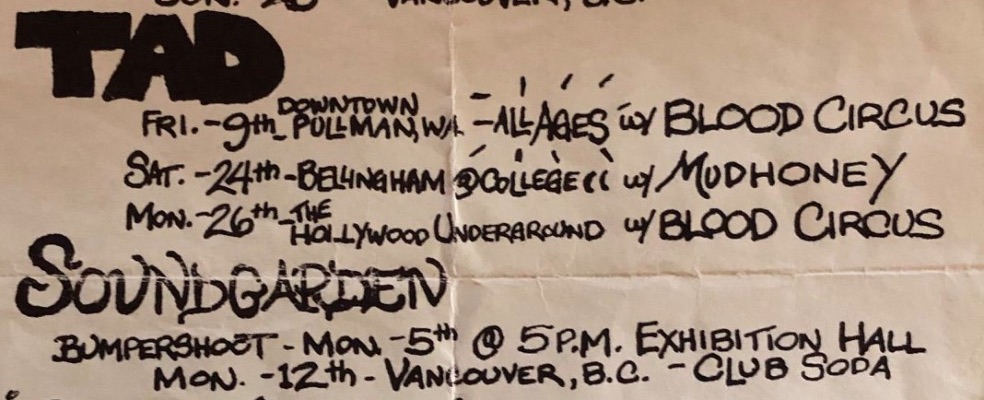 TAD
FRI. - 9th - DOWNTOWN PULLMAN, WA. - ALL AGES w/ BLOOD CIRCUS
SAT. - 24th - BELLINGHAM @ COLLEGE w/ MUDHONEY
MON. - 26th - THE HOLLYWOOD UNDERGROUND w/ BLOOD CIRCUS
SOUNDGARDEN
BUMPERSHOOT - MON. - 5th @ 5 P.M. EXHIBITION HALL
MON. - 12th - VANCOUVER, B.C. - CLUB SODA